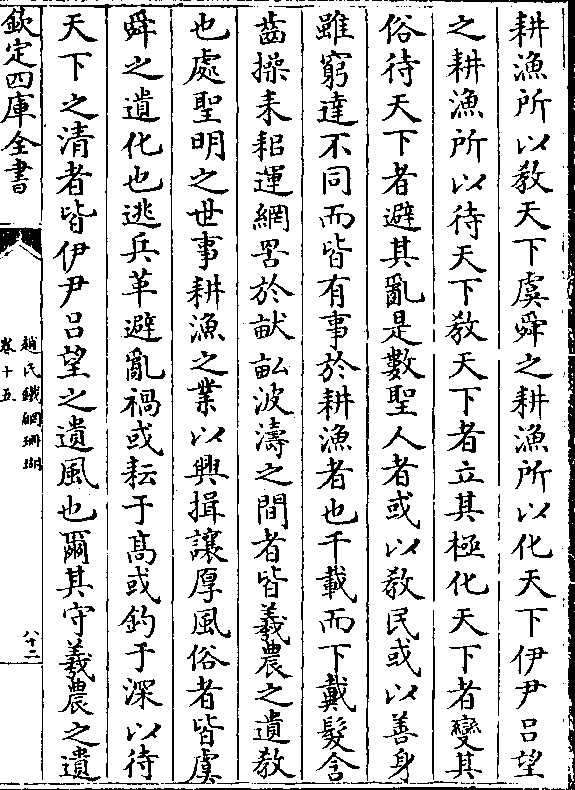 耕漁所以教天下虞舜之耕漁所以化天下伊尹吕望
之耕漁所以待天下教天下者立其極化天下者變其
俗待天下者避其亂是數聖人者或以教民或以善身
雖窮達不同而皆有事於耕漁者也千載而下戴髮含
齒操耒耜運網罟於畎畝波濤之間者皆羲農之遺教
也處聖明之世事耕漁之業以興揖讓厚風俗者皆虞
舜之遺化也逃兵革避亂禍或耘于髙或釣于深以待
天下之清者皆伊尹吕望之遺風也爾其守羲農之遺
欽定四庫全書
趙氏鐵網珊瑚
卷十五
八十二